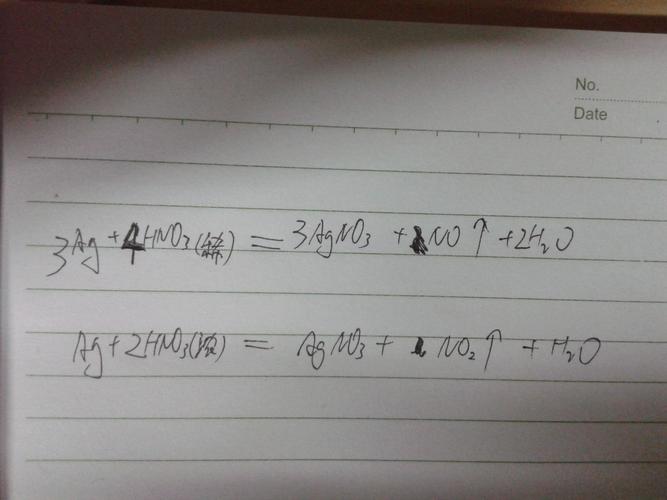 No.
Date
3Ag+4HNO₃(稀)=3AgNO₃+NO↑+2H₂O
Ag+2HNO₃(浓)=AgNO₃+NO₂↑+H₂O